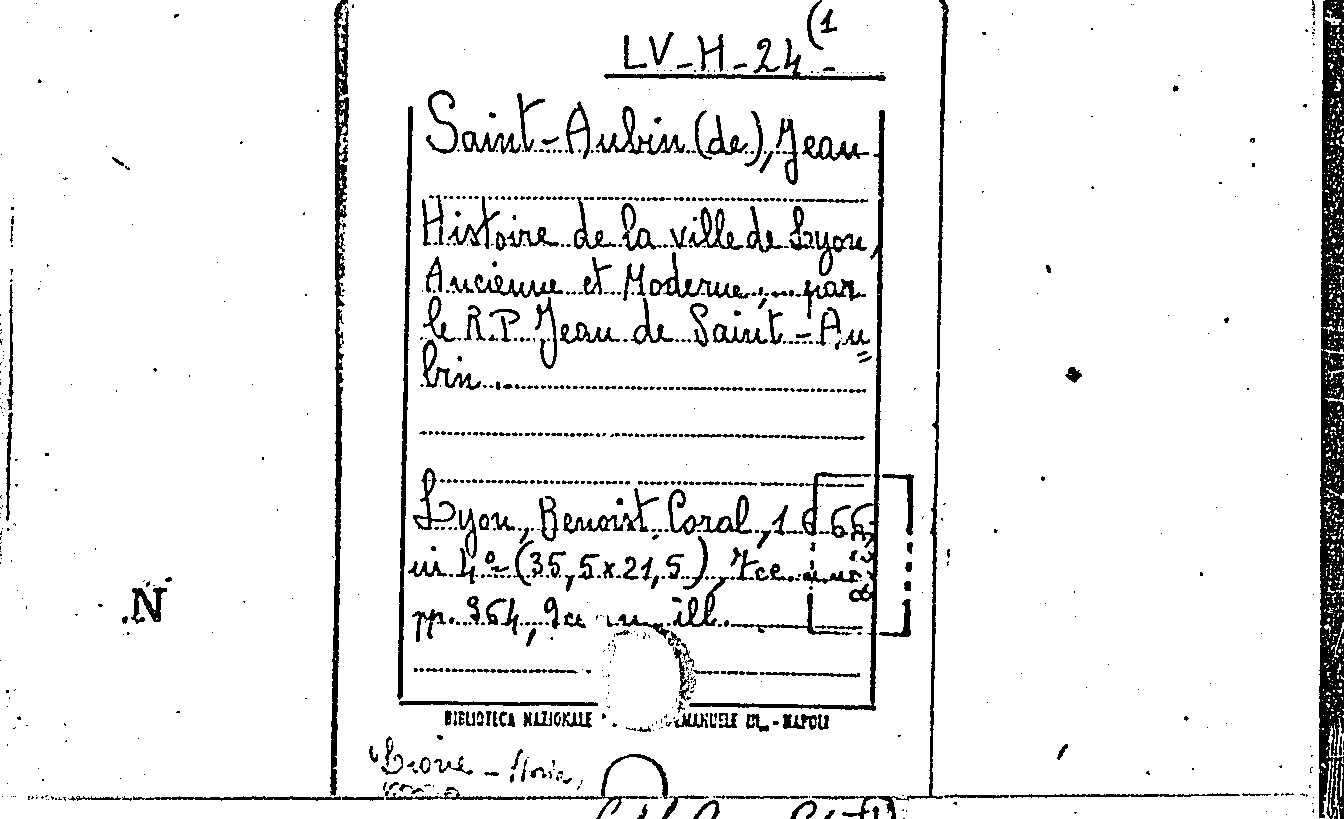 LV-H-24(1
Saint-Aubin (de), Jean
Histoire de la ville de Lyon,
Ancienne et Moderne,... par
le R.P. Jean de Saint-Au=
bin...
Lyon, Benoist Coral, 1666,
in 4º (35,5x21,5), 7cc.
pp. 364, ill.
BIBLIOTECA NAZIONALE EMANUELE III - NAPOLI
N
Lione - Storia